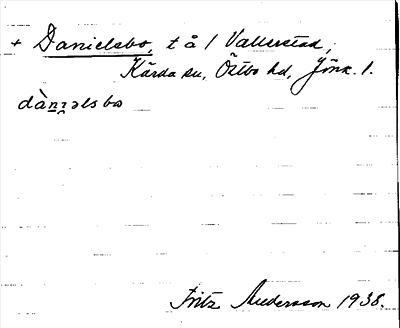 + Danielsbo, t å / Vallerstad,
Kärda sn, Östbo hd, Jönk. l.
dànɪ̯əlsbo
Fritz Andersson 1938.